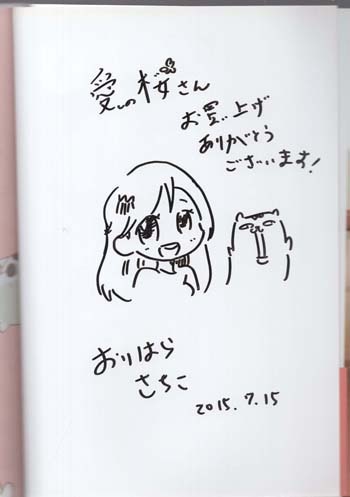 愛の桜さん
お買い上げ
ありがとう
ございます!
おりはら
さちこ
2015.7.15